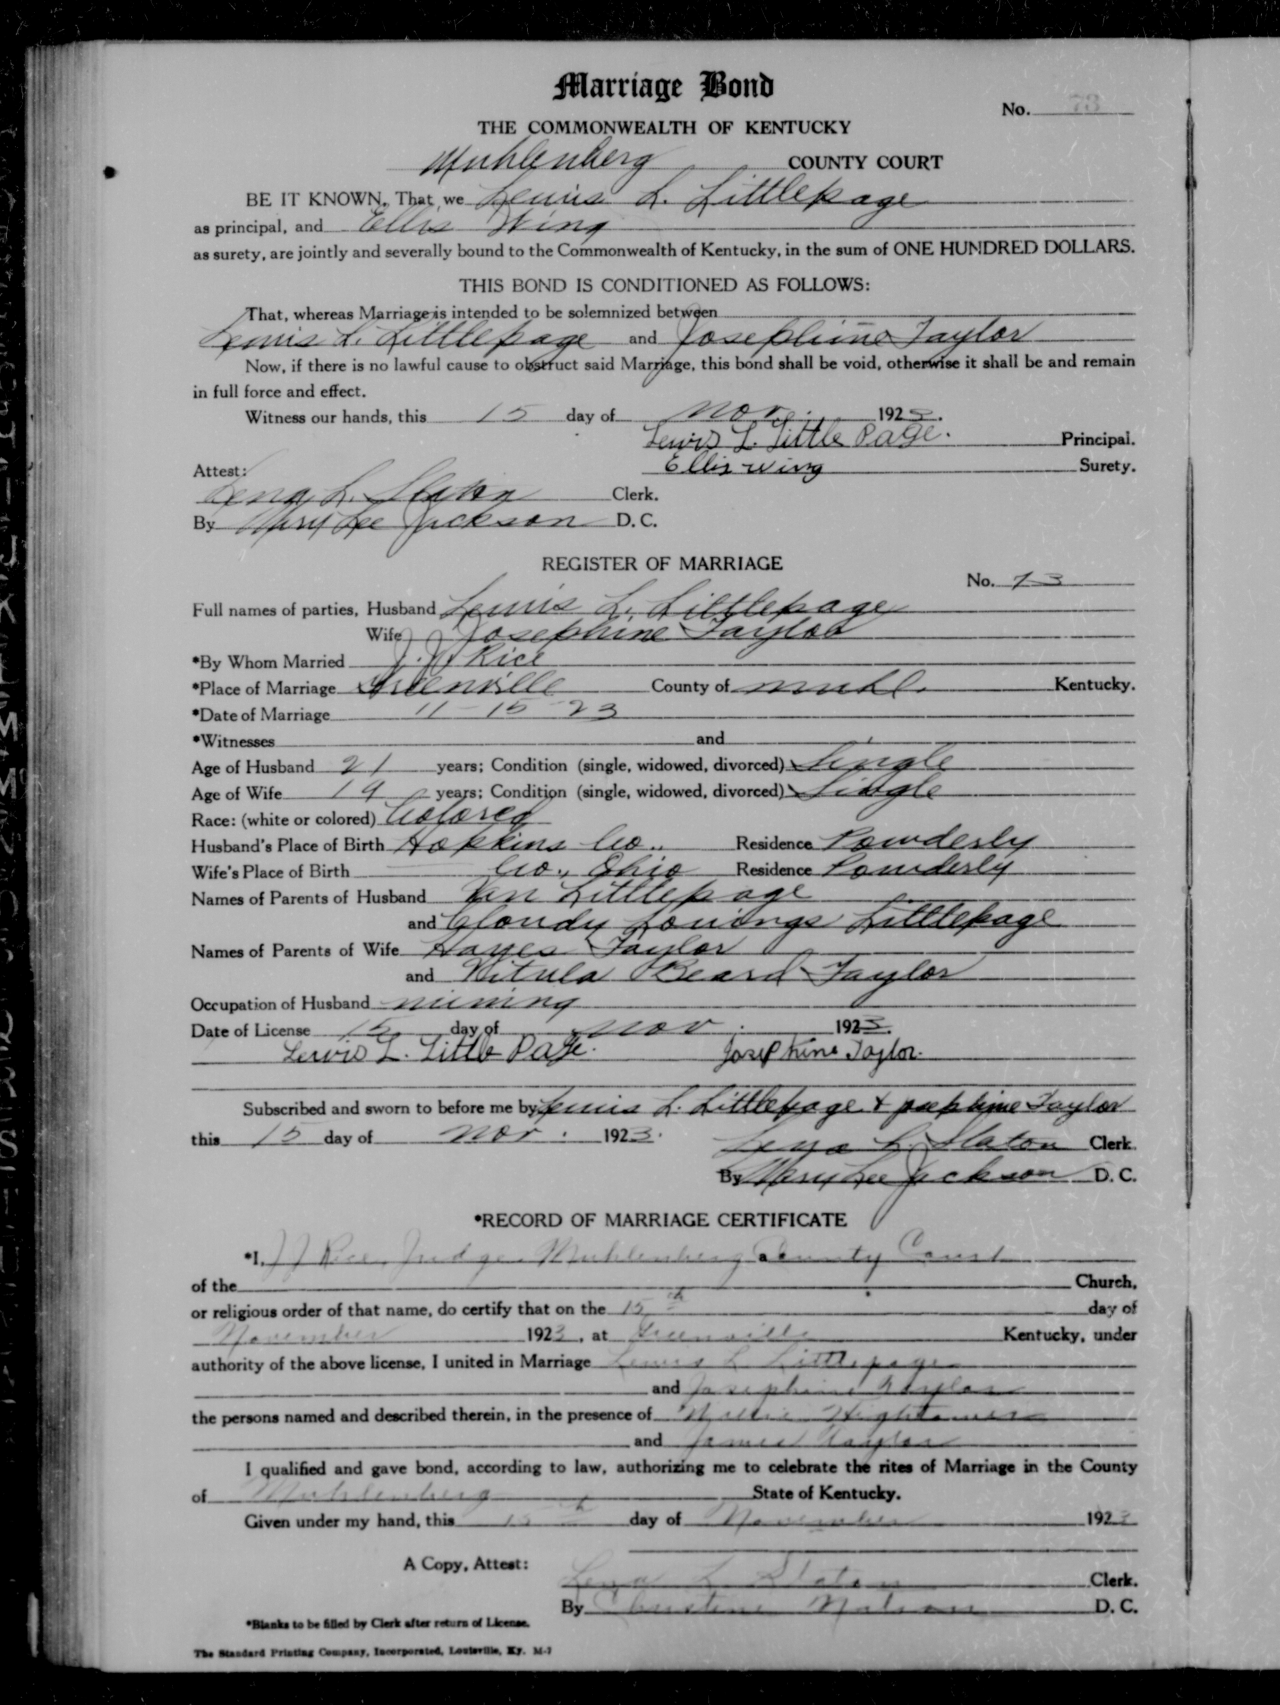 Marriage Bond
No. 73
THE COMMONWEALTH OF KENTUCKY
Muhlenberg COUNTY COURT
BE IT KNOWN, That we Lewis L. Littlepage
as principal, and Ellis Wing
as surety, are jointly and severally bound to the Commonwealth of Kentucky, in the sum of ONE HUNDRED DOLLARS.
THIS BOND IS CONDITIONED AS FOLLOWS:
That, whereas Marriage is intended to be solemnized between
Lewis L. Littlepage and Josephine Taylor
Now, if there is no lawful cause to obstruct said Marriage, this bond shall be void, otherwise it shall be and remain
in full force and effect.
Witness our hands, this 15 day of Nov. 1923.
Lewis L. Little Page. Principal.
Ellis wing Surety.
Attest:
Lena L. Slaton Clerk.
By Mary Lee Jackson D. C.
REGISTER OF MARRIAGE
No. 73
Full names of parties, Husband Lewis L. Littlepage
Wife Josephine Taylor
*By Whom Married J. J. Rice
*Place of Marriage Greenville County of Muhl. Kentucky.
*Date of Marriage 11-15-23
*Witnesses and
Age of Husband 21 years; Condition (single, widowed, divorced) Single
Age of Wife 19 years; Condition (single, widowed, divorced) Single
Race: (white or colored) Colored
Husband's Place of Birth Hopkins Co., Residence Powderly
Wife's Place of Birth Co., Ohio Residence Powderly
Names of Parents of Husband Van Littlepage
and Cloudy Lovings Littlepage
Names of Parents of Wife Hayes Taylor
and Vitula Beard Taylor
Occupation of Husband mining
Date of License 15 day of Nov. 1923.
Lewis L. Little Page. Josephine Taylor.
Subscribed and sworn to before me by Lewis L. Littlepage & Josephine Taylor
this 15 day of Nov. 1923.
Lena L. Slaton Clerk
By Mary Lee Jackson D. C.
*RECORD OF MARRIAGE CERTIFICATE
*I, J J Rice, Judge Muhlenberg County Court
of the Church,
or religious order of that name, do certify that on the 15th day of
November 1923, at Greenville Kentucky, under
authority of the above license, I united in Marriage Lewis L Littlepage
and Josephine Taylor
the persons named and described therein, in the presence of Willie Hightower
and James Taylor
I qualified and gave bond, according to law, authorizing me to celebrate the rites of Marriage in the County
of Muhlenberg State of Kentucky.
Given under my hand, this 15th day of November 1923
A Copy, Attest:
Lena L Slaton Clerk.
By Christine Nelson D. C.
*Blanks to be filled by Clerk after return of License.
The Standard Printing Company, Incorporated, Louisville, Ky. M-7